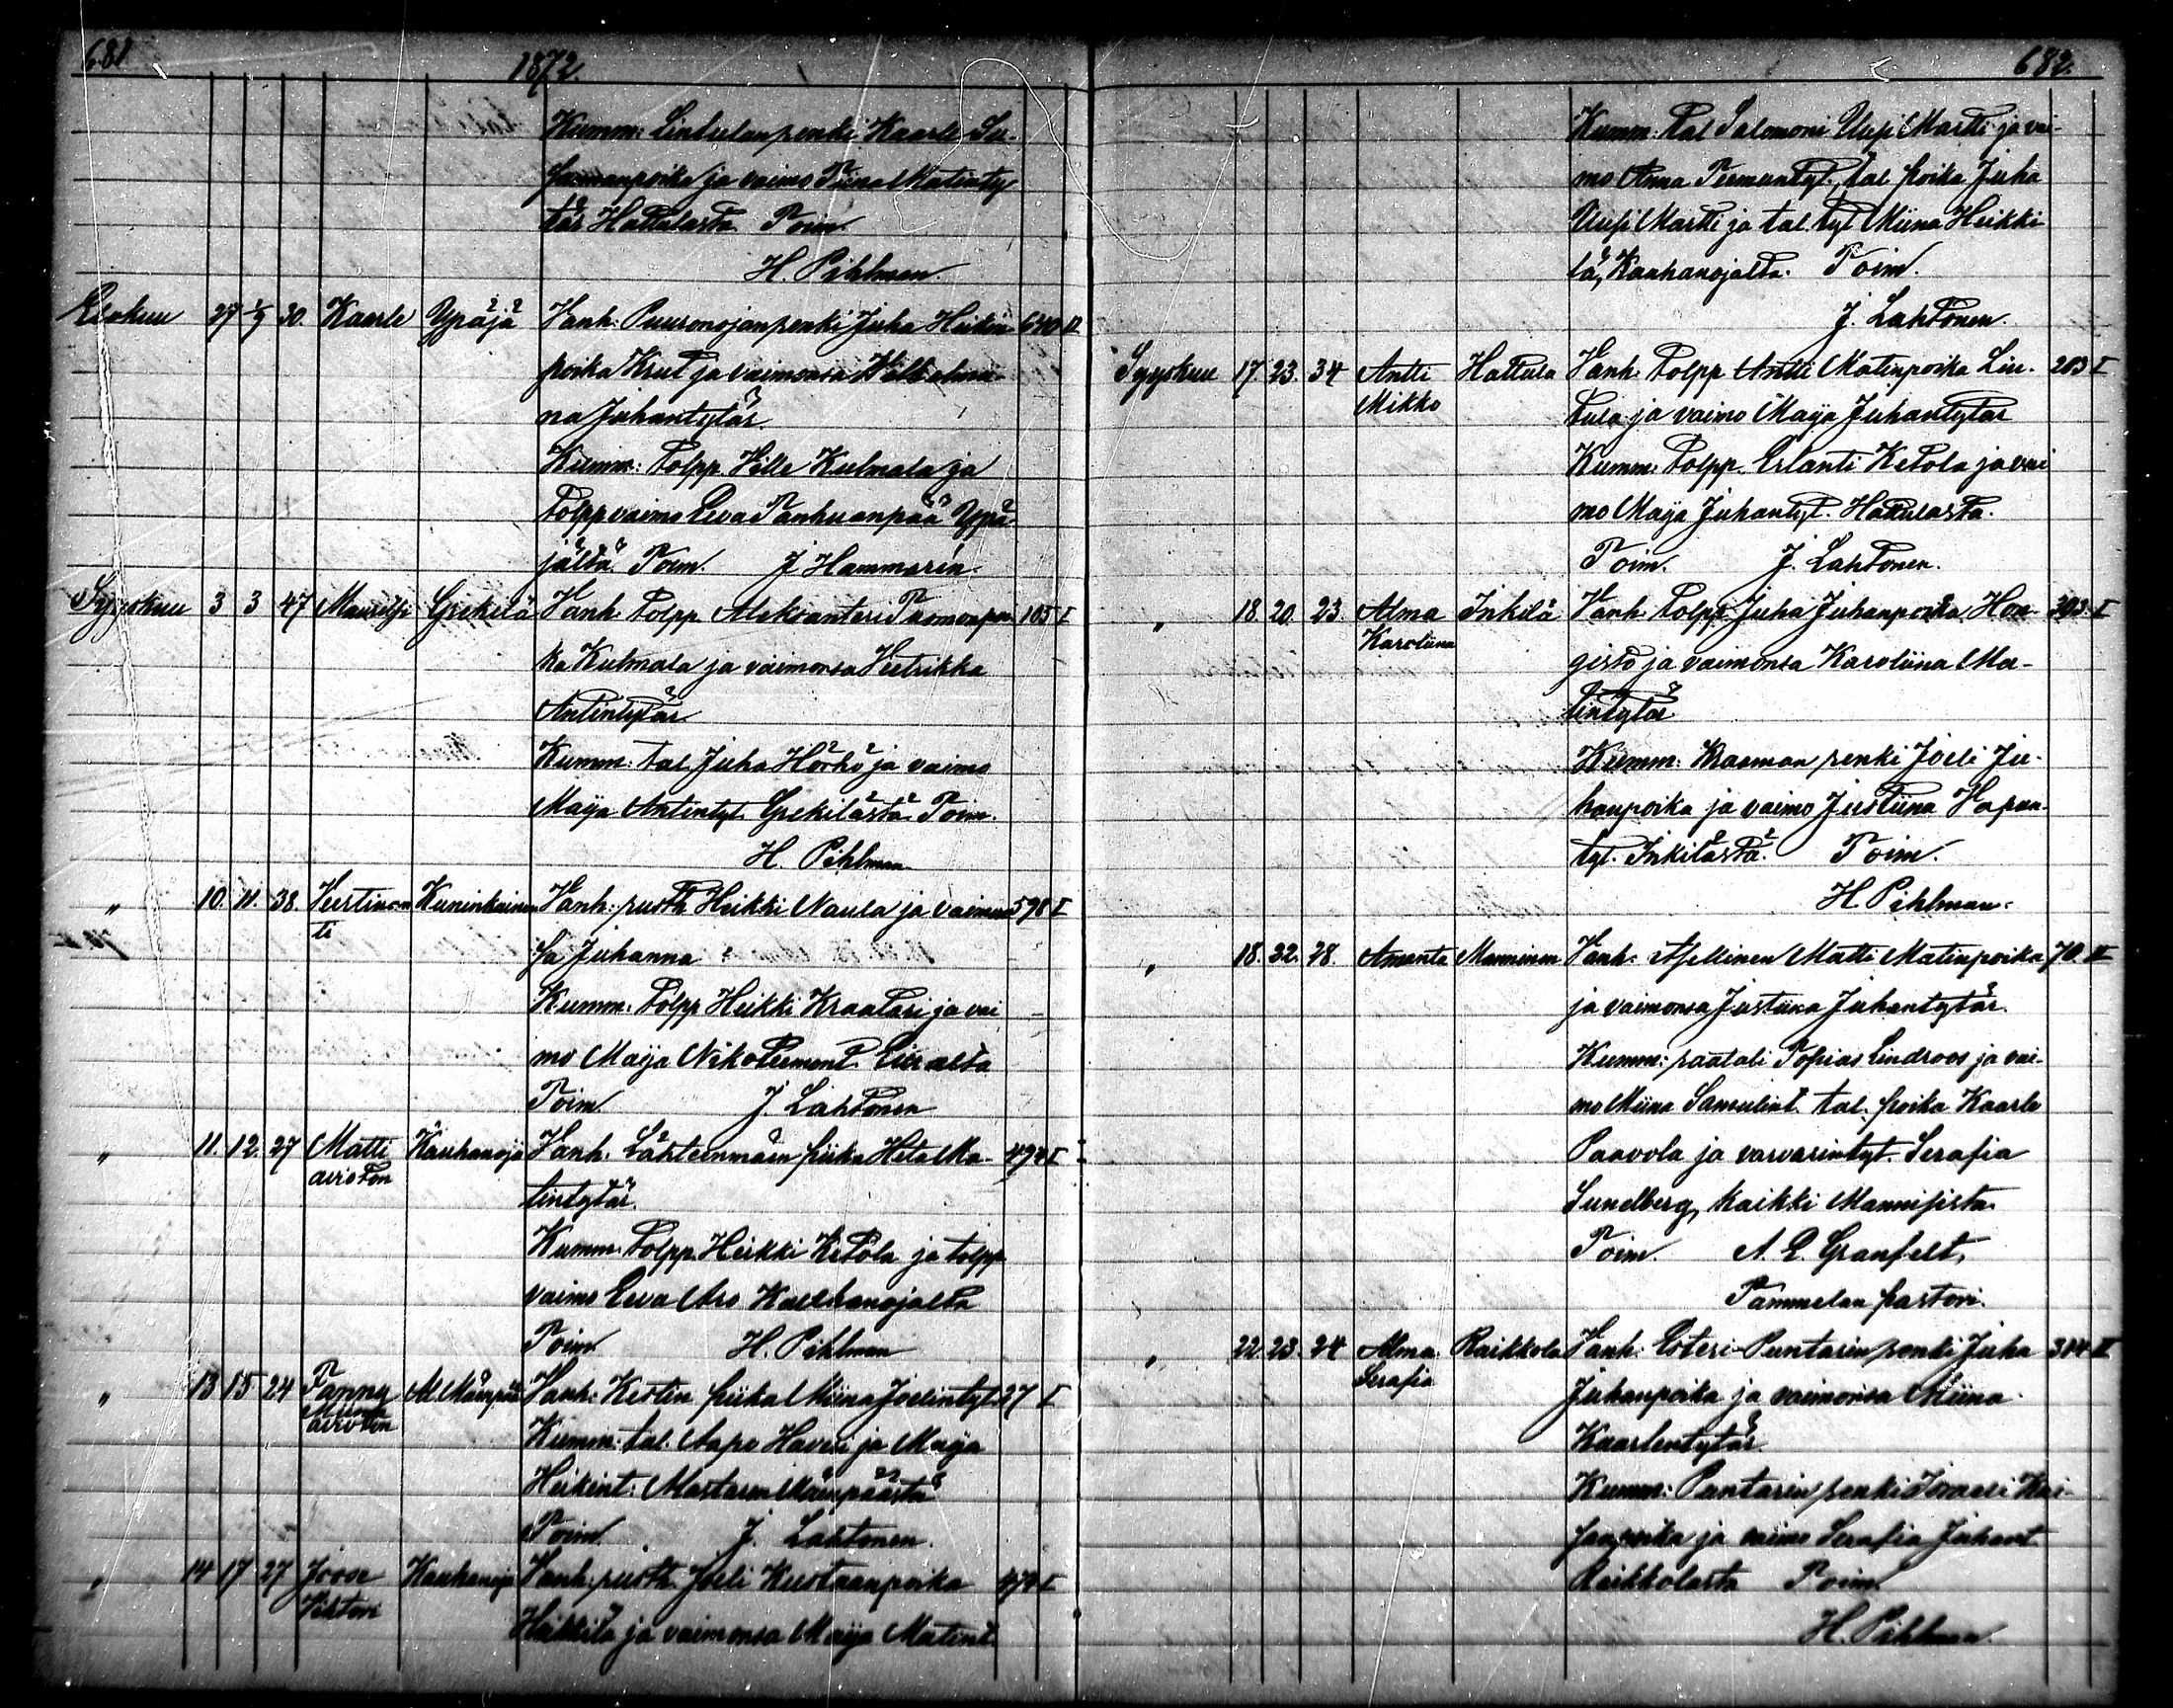 681
1872.
Kumm: Lintulan renki Kaarle Ju-
hananpoika ja vaimo Tiina Matinty
tär Hattulasta Toim.
H. Pihlman.
Elokuu 27 1/9 30. Kaarle Ypäjä Vanh: Puuronojan renki Juha Heikin 640 II
poika Krut ja vaimonsa Wilhelmii-
na Juhantytär
Kumm: Tolpp. Ville Kulmala ja
Tolpp vaimo Eeva Tanhuanpää Ypä
jältä Toim. J Hammarén.
Syyskuu 3 3 47 Mauritsi Grekilä Vanh Tolpp Aleksanteri Tuomaanpoi- 105 I
ka Kulmala ja vaimonsa Veetrikka
Antintytär
Kumm: tal. Juha Hörhö ja vaimo
Maija Antintyt. Grekilästä. Toim.
H. Pihlman
" 10. 11. 38. Vertinan Kuninkainen Vanh: rusth Heikki Naula ja vaimon 598 I
ti
sa Juhanna
Kumm: Tolpp Heikki Kraatari ja vai
mo Maija Nikoteemont.
Toim. J Lahtonen
" 11. 12. 27 Matti Kauhanoja Vanh. Lähteenmäen piika Heta Ma- 494 I
avioton
tintytär.
Kumm: Tolpp. Heikki Ketola ja tolpp
vaimo Eeva Aro Kauhanojalta
Toim. H. Pihlman
" 13 15 24 Fanny M Mäenpää Vanh: Kestin piika Miina Joelintyt. 27 I
Miina
avioton
Kumm: tal. Aape Haveri ja Maija
Heikint: Martaren Mäenpäästä
Toim. J. Lahtonen.
" 14 17 27 Joose Kauhanoja Vanh: rusth. Joeli Kustaanpoika 474 I
Viktori
Heikkilä ja vaimonsa Maija Matint.
682.
Kumm: Tal Salomoni Uusi Martti ja vai-
mo Anna Teemuntyt., tal poika Juha
Uusi Martti ja tal. tyt Miina Heikki
lä, Kauhanojalta. Toim.
J. Lahtonen.
Syyskuu 17. 23. 34 Antti Hattula Vanh. Tolpp Antti Matinpoika Lin- 203 I
Mikko
tula ja vaimo Maija Juhantytär
Kumm: Tolpp. Erlanti Ketola ja vai
mo Maija Juhantyt. Hattulasta.
Toim. J. Lahtonen.
" 18. 20. 23. Alma Inkilä Vanh. Tolpp. Juha Juhanpoika Hon- 303 I
Karoliina
gisto ja vaimonsa Karoliina Ma-
tintytär
Kumm: Kraaman renki Joeli Ju-
hanpoika ja vaimo Justiina Hapan-
tyt. Inkilästä. Toim.
H. Pihlman.
" 18. 22. 28. Amanta Manninen Vanh: Itsellinen Matti Matinpoika 70. II
ja vaimonsa Justiina Juhantytär.
Kumm: räätäli Topias Lindroos ja vai-
mo Miina Samulint. tal. poika Kaarle
Paavola ja varvarintyt. Serafia
Sundberg, kaikki Mannisista
Toim. A. E. Granfelt,
Tammelan pastori.
" 22. 23. 24 Alma Raikkola Vanh: Esteri-Puntarin renki Juha 314 II
Serafia
Juhanpoika ja vaimonsa Miina
Kaarlentytär
Kumm: Puntarin renki Israeli Kai-
sanpoika ja vaimo Serafia Juhant.
Raikkolasta Toim.
H. Pihlman.